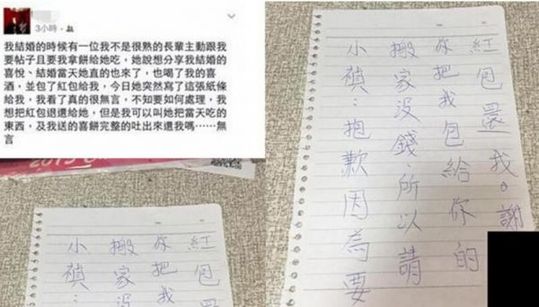 3小時
我結婚的時候有一位我不是很熟的長輩主動跟我
要帖子且要我拿餅給她吃，她說想分享我結婚的
喜悅、結婚當天她真的也來了，也喝了我的喜
酒，並包了紅包給我，今日她突然寫了這張紙條
給我，我看了真的很無言，不知要如何處理，我
想把紅包退還給她，但是我可以叫她把當天吃的
東西，及我送的喜餅完整的吐出來還我嗎……無
言
小禎：抱歉因為要
搬家沒錢，所以請
你把我包給你的
紅包還我。謝
小禎：
搬家沒
你把我
紅包還